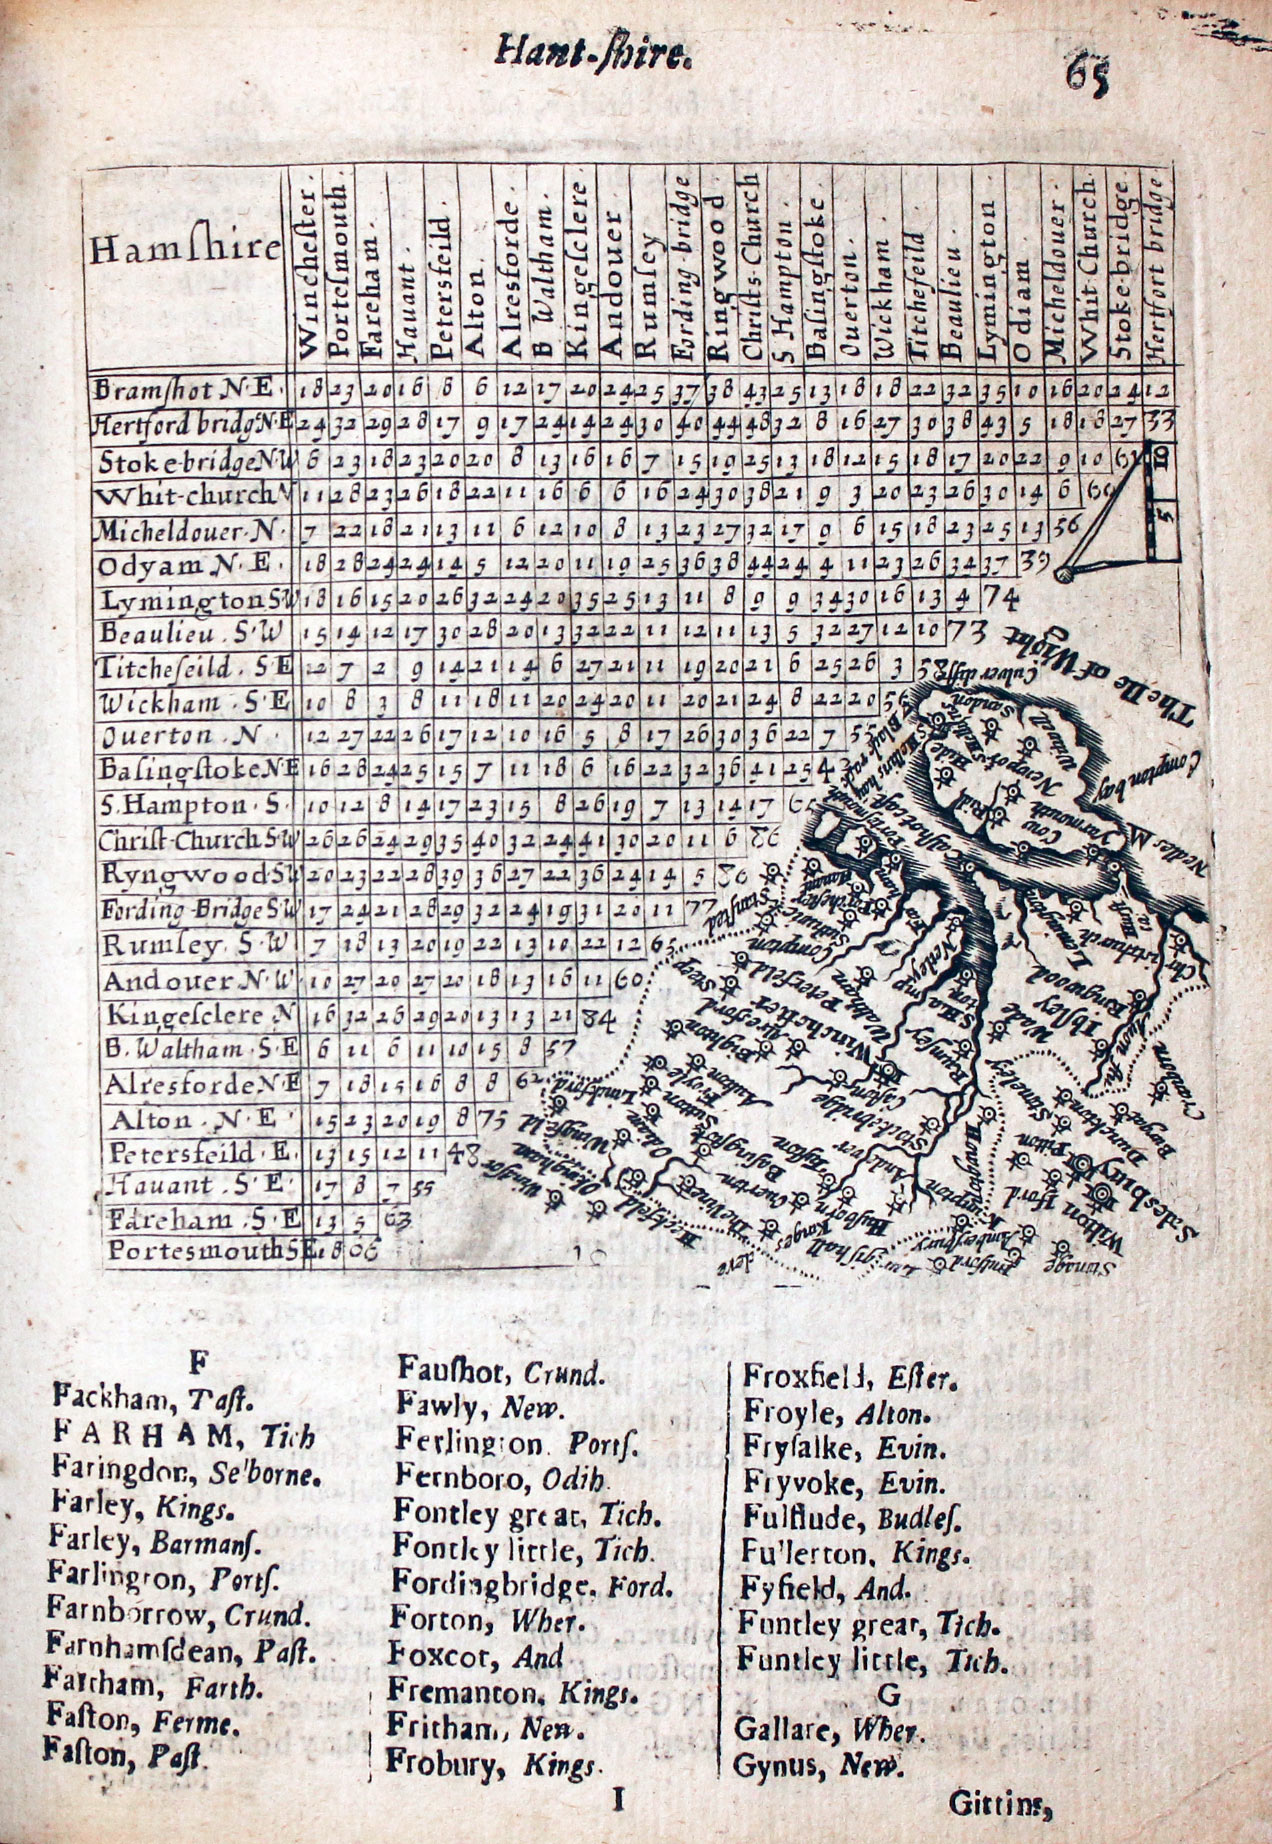 Hant-ſhire.
65
Hamſhire
Wincheſter.
Porteſmouth.
Fareham.
Hauant.
Petersfeild.
Alton.
Alresforde.
B Waltham.
Kingeſclere.
Andouer
Rumſey
Fording-bridge
Ringwood
Chriſts-Church
S Hampton.
Baſingſtoke.
Ouerton.
Wickham.
Titchefeild
Beaulieu.
Lymington
Odiam.
Micheldouer.
Whit-Church.
Stoke-bridge.
Hertfort bridge
Bramſhot N·E· 18 23 20 16 8 6 12 17 20 24 25 37 38 43 25 13 18 18 22 32 35 10 16 20 24 12
Hertford bridgͤ N·E 24 32 29 28 17 9 17 24 14 24 30 40 44 48 32 8 16 27 30 38 43 5 18 18 27 33
Stoke-bridge N·W 6 23 18 23 20 20 8 13 16 16 7 15 19 25 13 18 12 15 18 17 20 22 9 10
Whit-church N 11 28 23 26 18 22 11 16 6 6 16 24 30 38 21 9 3 20 23 26 30 14 6
Micheldouer·N· 7 22 18 21 13 11 6 12 10 8 13 23 27 32 17 9 6 15 18 23 25 13 56
Odyam N·E. 18 28 24 24 14 5 12 20 11 19 25 36 38 44 24 4 11 23 26 34 37 39
Lymington SW 18 16 15 20 26 32 24 20 35 25 13 11 8 9 9 34 30 16 13 4 74
Beaulieu. S·W 15 14 12 17 30 28 20 13 32 22 11 12 11 13 5 32 27 12 10 73
Titcheſeild. S·E 12 7 2 9 14 21 14 6 27 21 11 19 20 21 6 25 26 3 58
Wickham. S·E 10 8 3 8 11 18 11 20 24 20 11 20 21 24 8 22 20 56
Ouerton. N· 12 27 22 26 17 12 10 16 5 8 17 26 30 36 22 7 55
Baſingſtoke N·E 16 28 24 25 15 7 11 18 6 16 22 32 36 41 25
S.Hampton·S· 10 12 8 14 17 23 15 8 26 19 7 13 14 17
Chriſt-Church S·W 26 26 24 29 35 40 32 24 41 30 20 11 6 86
Ryngwood·SW 20 23 22 28 39 36 27 22 36 24 14 5 80
Fording-Bridge S·W 17 24 21 28 29 32 24 19 31 20 11 77
Rumſey. S·W 7 18 13 20 19 22 13 10 22 12 65
Andouer N·W· 10 27 20 27 20 18 13 16 11 60
Kingeſclere N 16 32 26 29 20 13 13 21 84
B.Waltham·S·E 6 11 6 11 10 15 8 57
Alresforde N·E 7 18 15 16 8 8 62
Alton. N·E 15 23 20 19 8 75
Petersfeild·E· 13 15 12 11 48
Hauant. S·E· 17 8 7 55
Fareham.S·E 13 5 63
Portesmouth SE 18 66
10
5
The Ile of Wight
Culver cliffe
Compton bay
Nedles
Yarmouth
Cow
Calſhot caſt
Porteſmouth
Stanſted
Compton
Peterſfeld
Waltham
Wincheſter
Alresford
Bighton
Steep
Netley
S Hampton
Rumſey
Lemington
Chriſtchurch
Ringwood
Ibſley
Wade
Stockbridge
Andover
Baſingſtok
Ouerton
Tufton
Odiam
Froyle
Sutton
Wingfeld
Windſor
Okingham
Heckfeild
The Vine
Kingeſclere
Husborn
Houghton
Kimpton
Ambeſbury
Stonage
Wilton
Salesbury
Dunckton
Cranborn
F
Fackham, Taſt.
FARHAM, Tich
Faringdon, Se'borne.
Farley, Kings.
Farley, Barmanſ.
Farlington, Portſ.
Farnborrow, Crund.
Farnhamſdean, Paſt.
Fartham, Farth.
Faſton, Ferme.
Faſton, Paſt.
Fauſhot, Crund.
Fawly, New.
Ferlington. Portſ.
Fernboro, Odih.
Fontley great, Tich.
Fontley little, Tich.
Fordingbridge. Ford.
Forton, Wher.
Foxcot, And
Fremanton. Kings.
Fritham, New.
Frobury, Kings.
Froxfield, Eſter.
Froyle, Alton.
Fryſalke, Evin.
Fryvoke, Evin.
Fulflude, Budleſ.
Fu'lerton. Kings.
Fyfield, And.
Funtley great, Tich.
Funtley little, Tich.
G
Gallare, Wher.
Gynus, New.
I
Gittins,